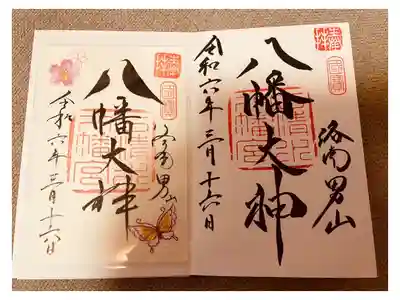 奉拝
国宝
八幡大神
洛南男山
令和六年三月十六日
奉拝
国宝
八幡大神
洛南男山
令和六年三月十六日